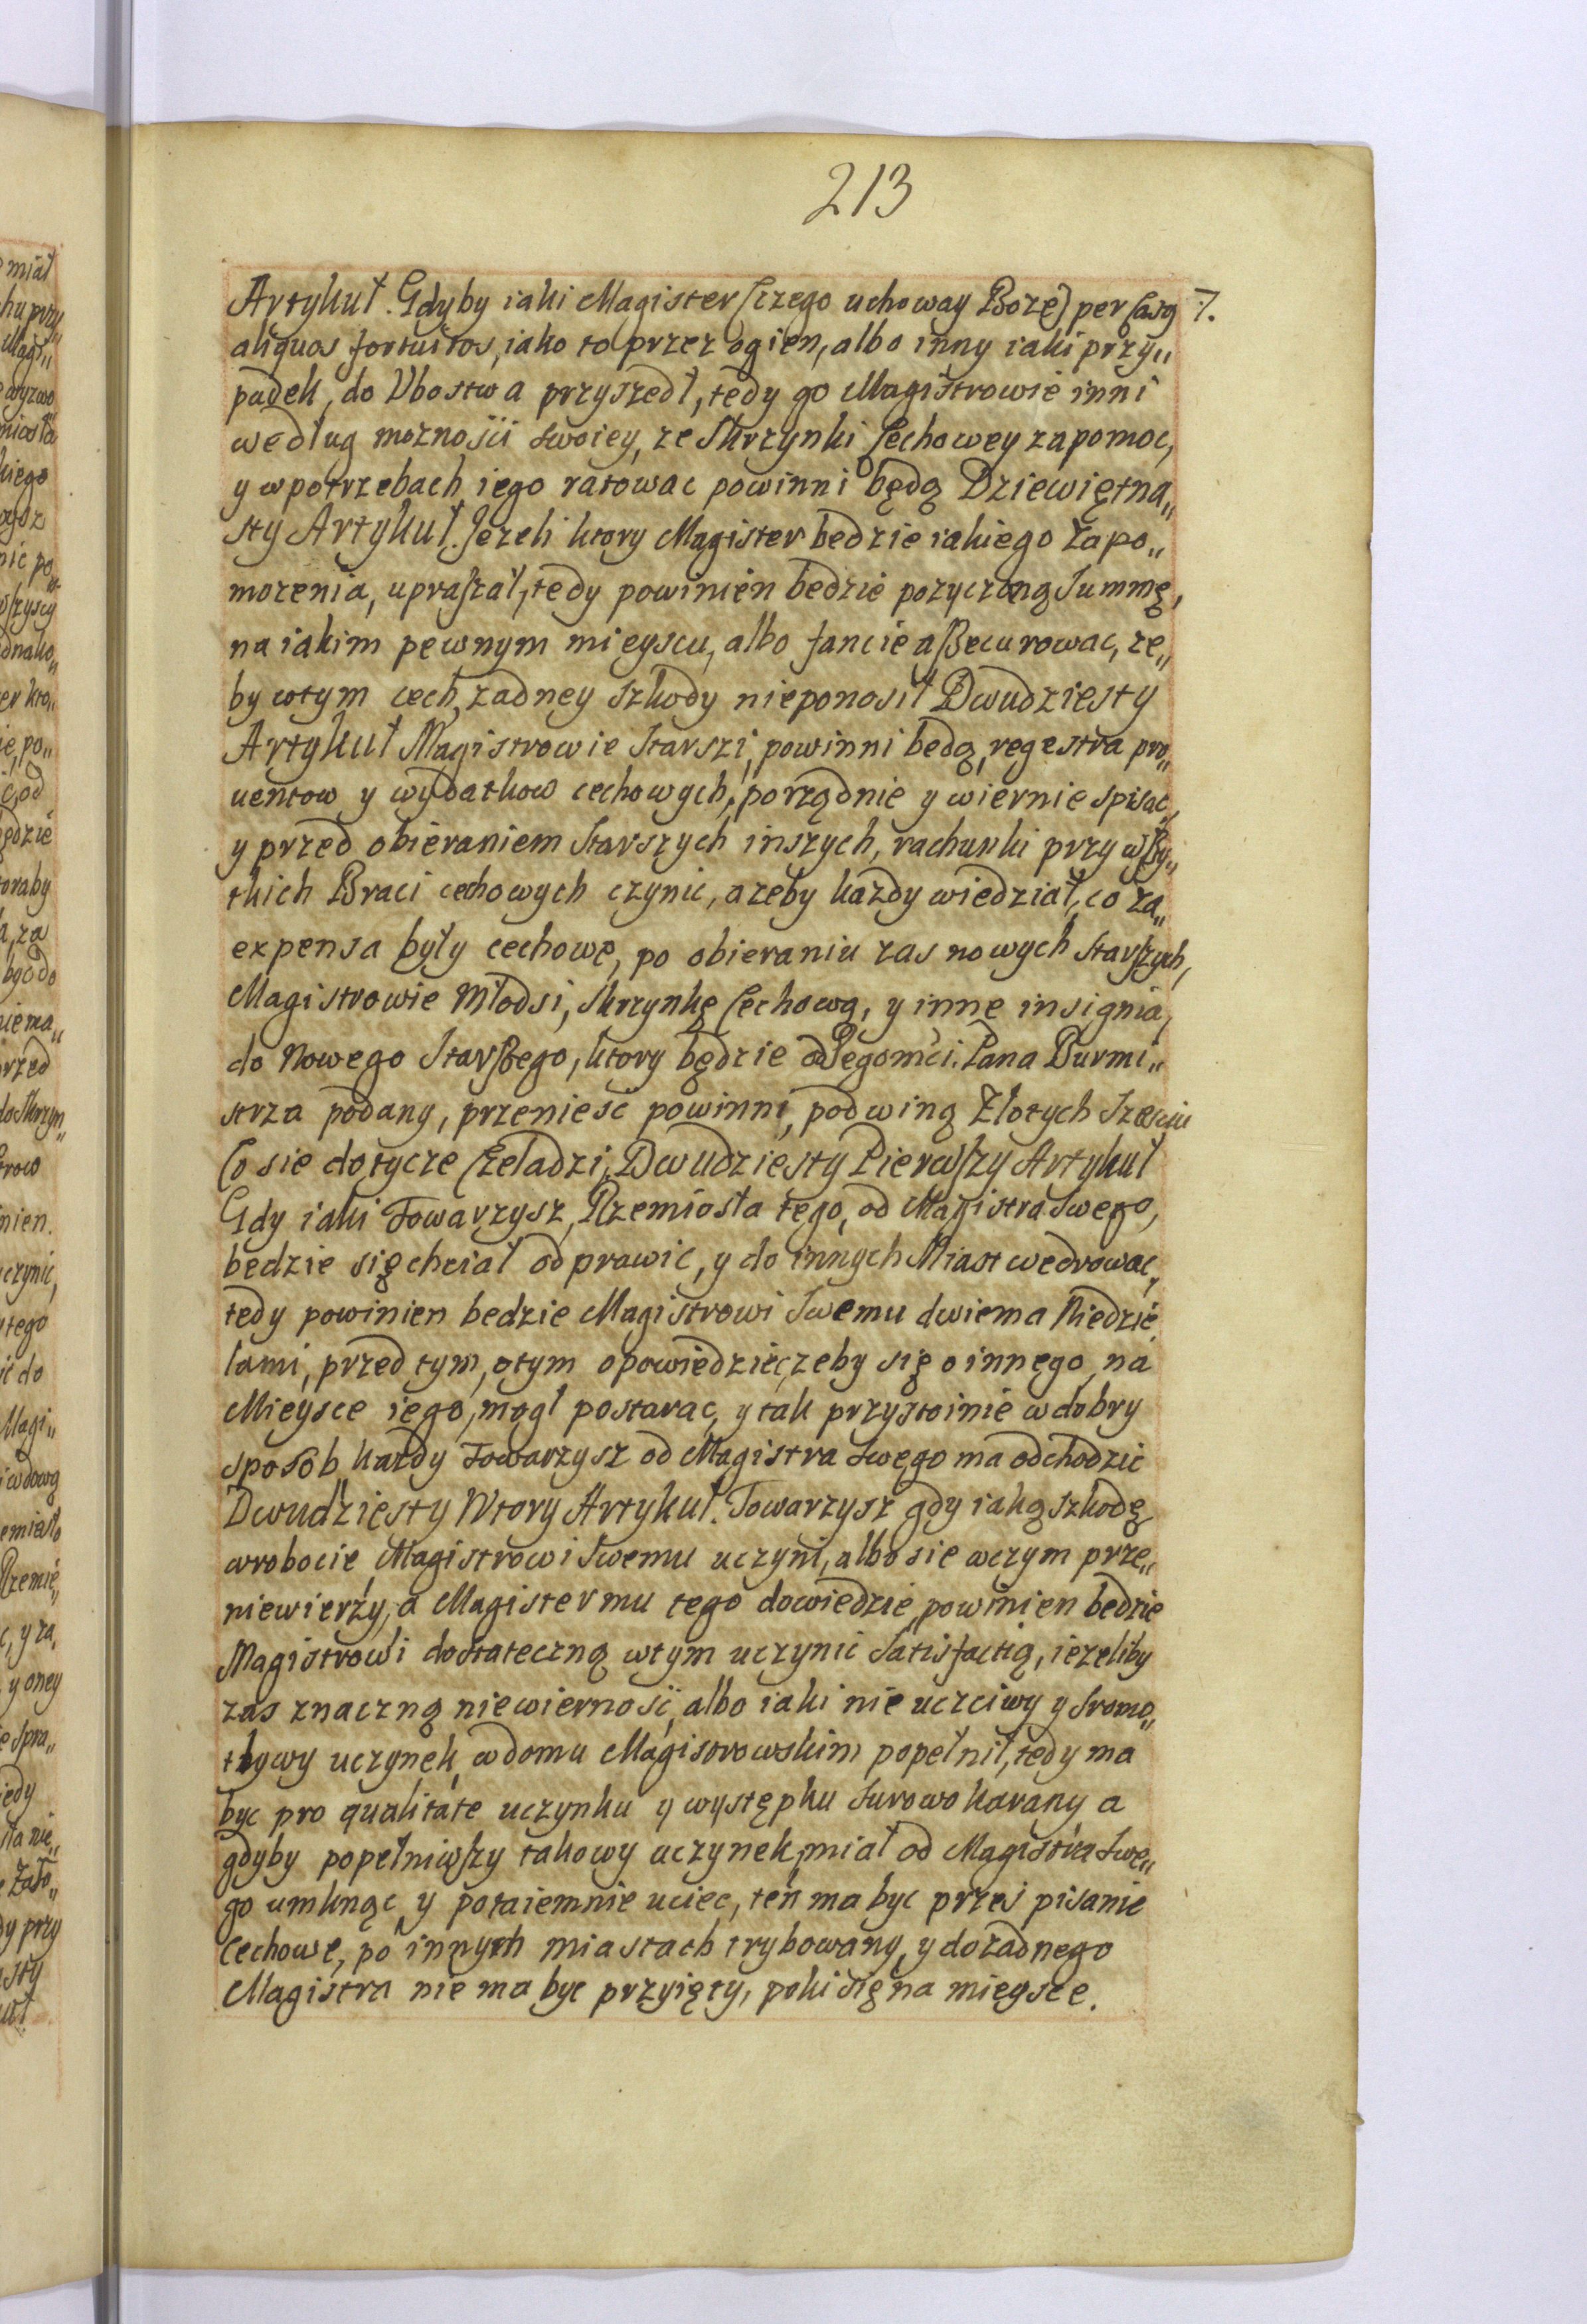 213
Artykuł. Gdyby iaki Magister (czego uchoway Boze) per Casq 7.
aliquos fortuitos, iako to przez ogien, albo inny iaki przy„
padek, do Vbostwa przyszedł, tedy go Magistrowie inni
według moznosci swoiey, ze Skrzynki Cechowey zapomoc,
y w potrzebach iego ratowac powinni będą Dziewiętna„
sty Artykuł. Jezeli ktory Magister bedzie iakiego Zapo„
mozenia, upraszał, tedy powinien bedzie pozyczoną Summę,
na iakim pewnym mieyscu, albo fancie assecurowac, ze„
by wtym cech, zadney szkody nieponosił Dwudziesty
Artykuł Magistrowie Starszi, powinni będą, regestra pro„
uentow y wydatkow cechowych, porządnie y wiernie spisac,
y przed obieraniem Starszych inszych, rachunki przy wszy„
tkich Braci cechowych czynic, azeby kazdy wiedział, co za„
expensa były cechowe, po obieraniu zas nowych Starszych,
Magistrowie Młodsi, Skrzynkę Cechową, y inne insignia,
do Nowego Starszego, ktory będzie od Jegomci. Pana Burmi„
strza podany, przenieść powinni, pod winą Złotych Szesciu
Co sie dotycze Czeladzi, Dwudziesty Pierwszy Artykuł
Gdy iaki Towarzysz, Rzemiosła tego, od Magistra Swego,
bedzie się chciał odprawic, y do innych Miast wedrowac,
tedy powinien bedzie Magistrowi Swemu dwiema Niedzie
lami, przed tym, otym opowiedziec, zeby się o innego, na
Mieysce iego, mogł postarac, y tak przystoinie w dobry
sposob, kazdy Towarzysz od Magistra Swego ma odchodzic
Dwudziesty Wtory Artykuł. Towarzysz gdy iaką szkodę
w robocie Magistrowi Swemu uczyni, albo sie w czym prze„
niewierzy, a Magister mu tego dowiedzie, powinien bedzie
Magistrowi dostateczną wtym uczynic Satisfactią, iezeliby
zas znaczną niewierność, albo iaki nie uczciwy y sromo„
tliwy uczynek, w domu Magistrowskim popełnił, tedy ma
byc pro qualitate uczynku y występku Surowo karany, a
gdyby popełniwszy takowy uczynek, miał od Magistra Swe„
go umknąc, y potaiemnie uciec, ten ma byc przes pisanie
Cechowe, po innych miastach trybowany, y do zadnego
Magistra nie ma byc przyięty, poki się na mieysce.